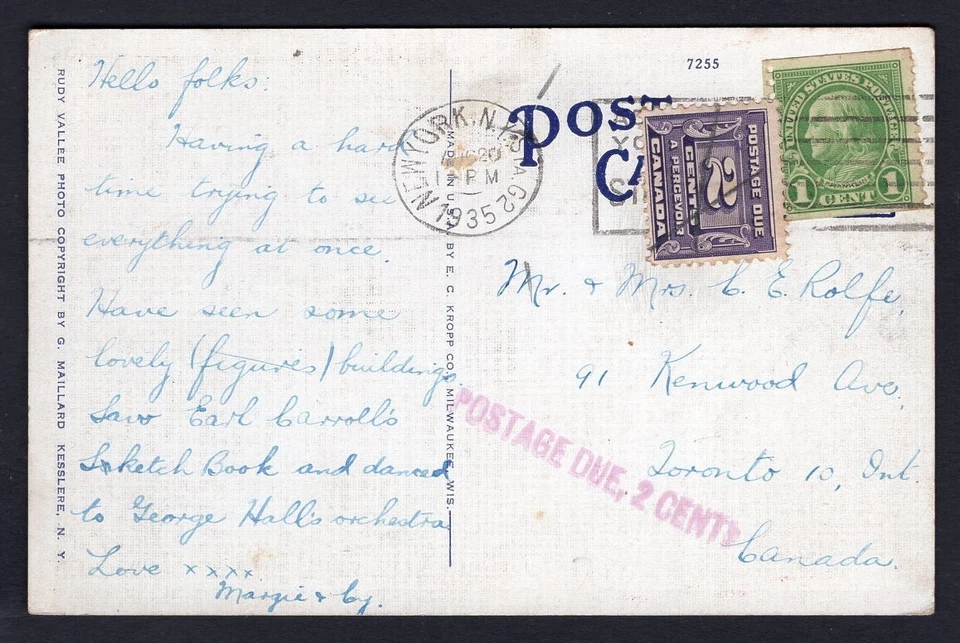 Hello folks:
Having a hard
time trying to see
everything at once.
Have seen some
lovely (figures) buildings.
Saw Earl Carroll's
Sketch Book and danced
to George Hall's orchestra
Love xxxx
Margie & Cy.
RUDY VALLEE PHOTO COPYRIGHT BY G. MAILLARD KESSLERE, N. Y.
MADE IN U.S.A. BY E. C. KROPP CO., MILWAUKEE, WIS.
7255
POST
NEW YORK, N.Y.
20
PM
1935
POSTAGE DUE
2
CENTS
A PERCEVOIR
CANADA
UNITED STATES POSTAGE
FRANKLIN
1 CENT 1
Mr. & Mrs. C. E. Rolfe,
91 Kenwood Ave,
Toronto 10, Ont.
Canada.
POSTAGE DUE, 2 CENTS